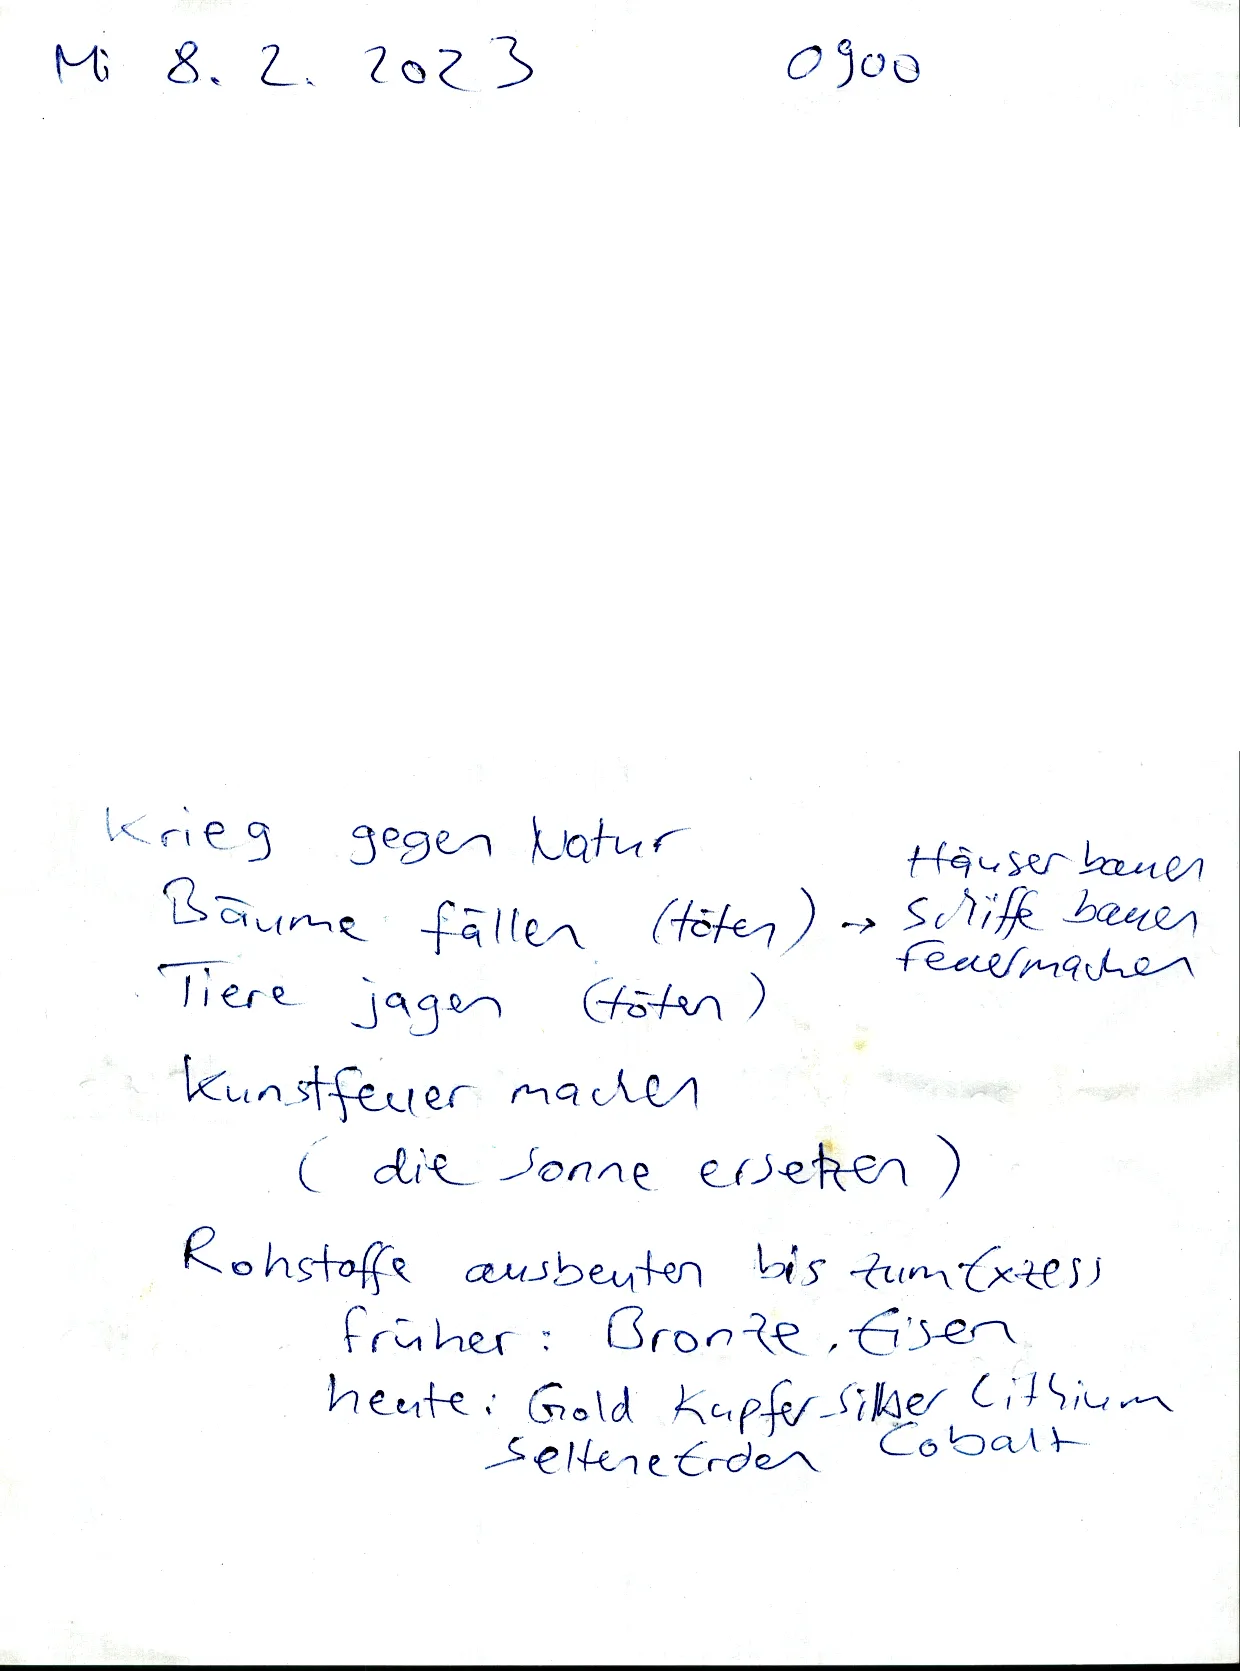 Mi 8. 2. 2023 0900
Krieg gegen Natur
Bäume fällen (töten) → Häuser bauen
Schiffe bauen
Feuermachen
Tiere jagen (töten)
Kunstfeuer machen
( die Sonne ersetzen )
Rohstoffe ausbeuten bis zum Exzess
früher: Bronze, Eisen
heute: Gold Kupfer Silber Lithium
Seltene Erden Cobalt